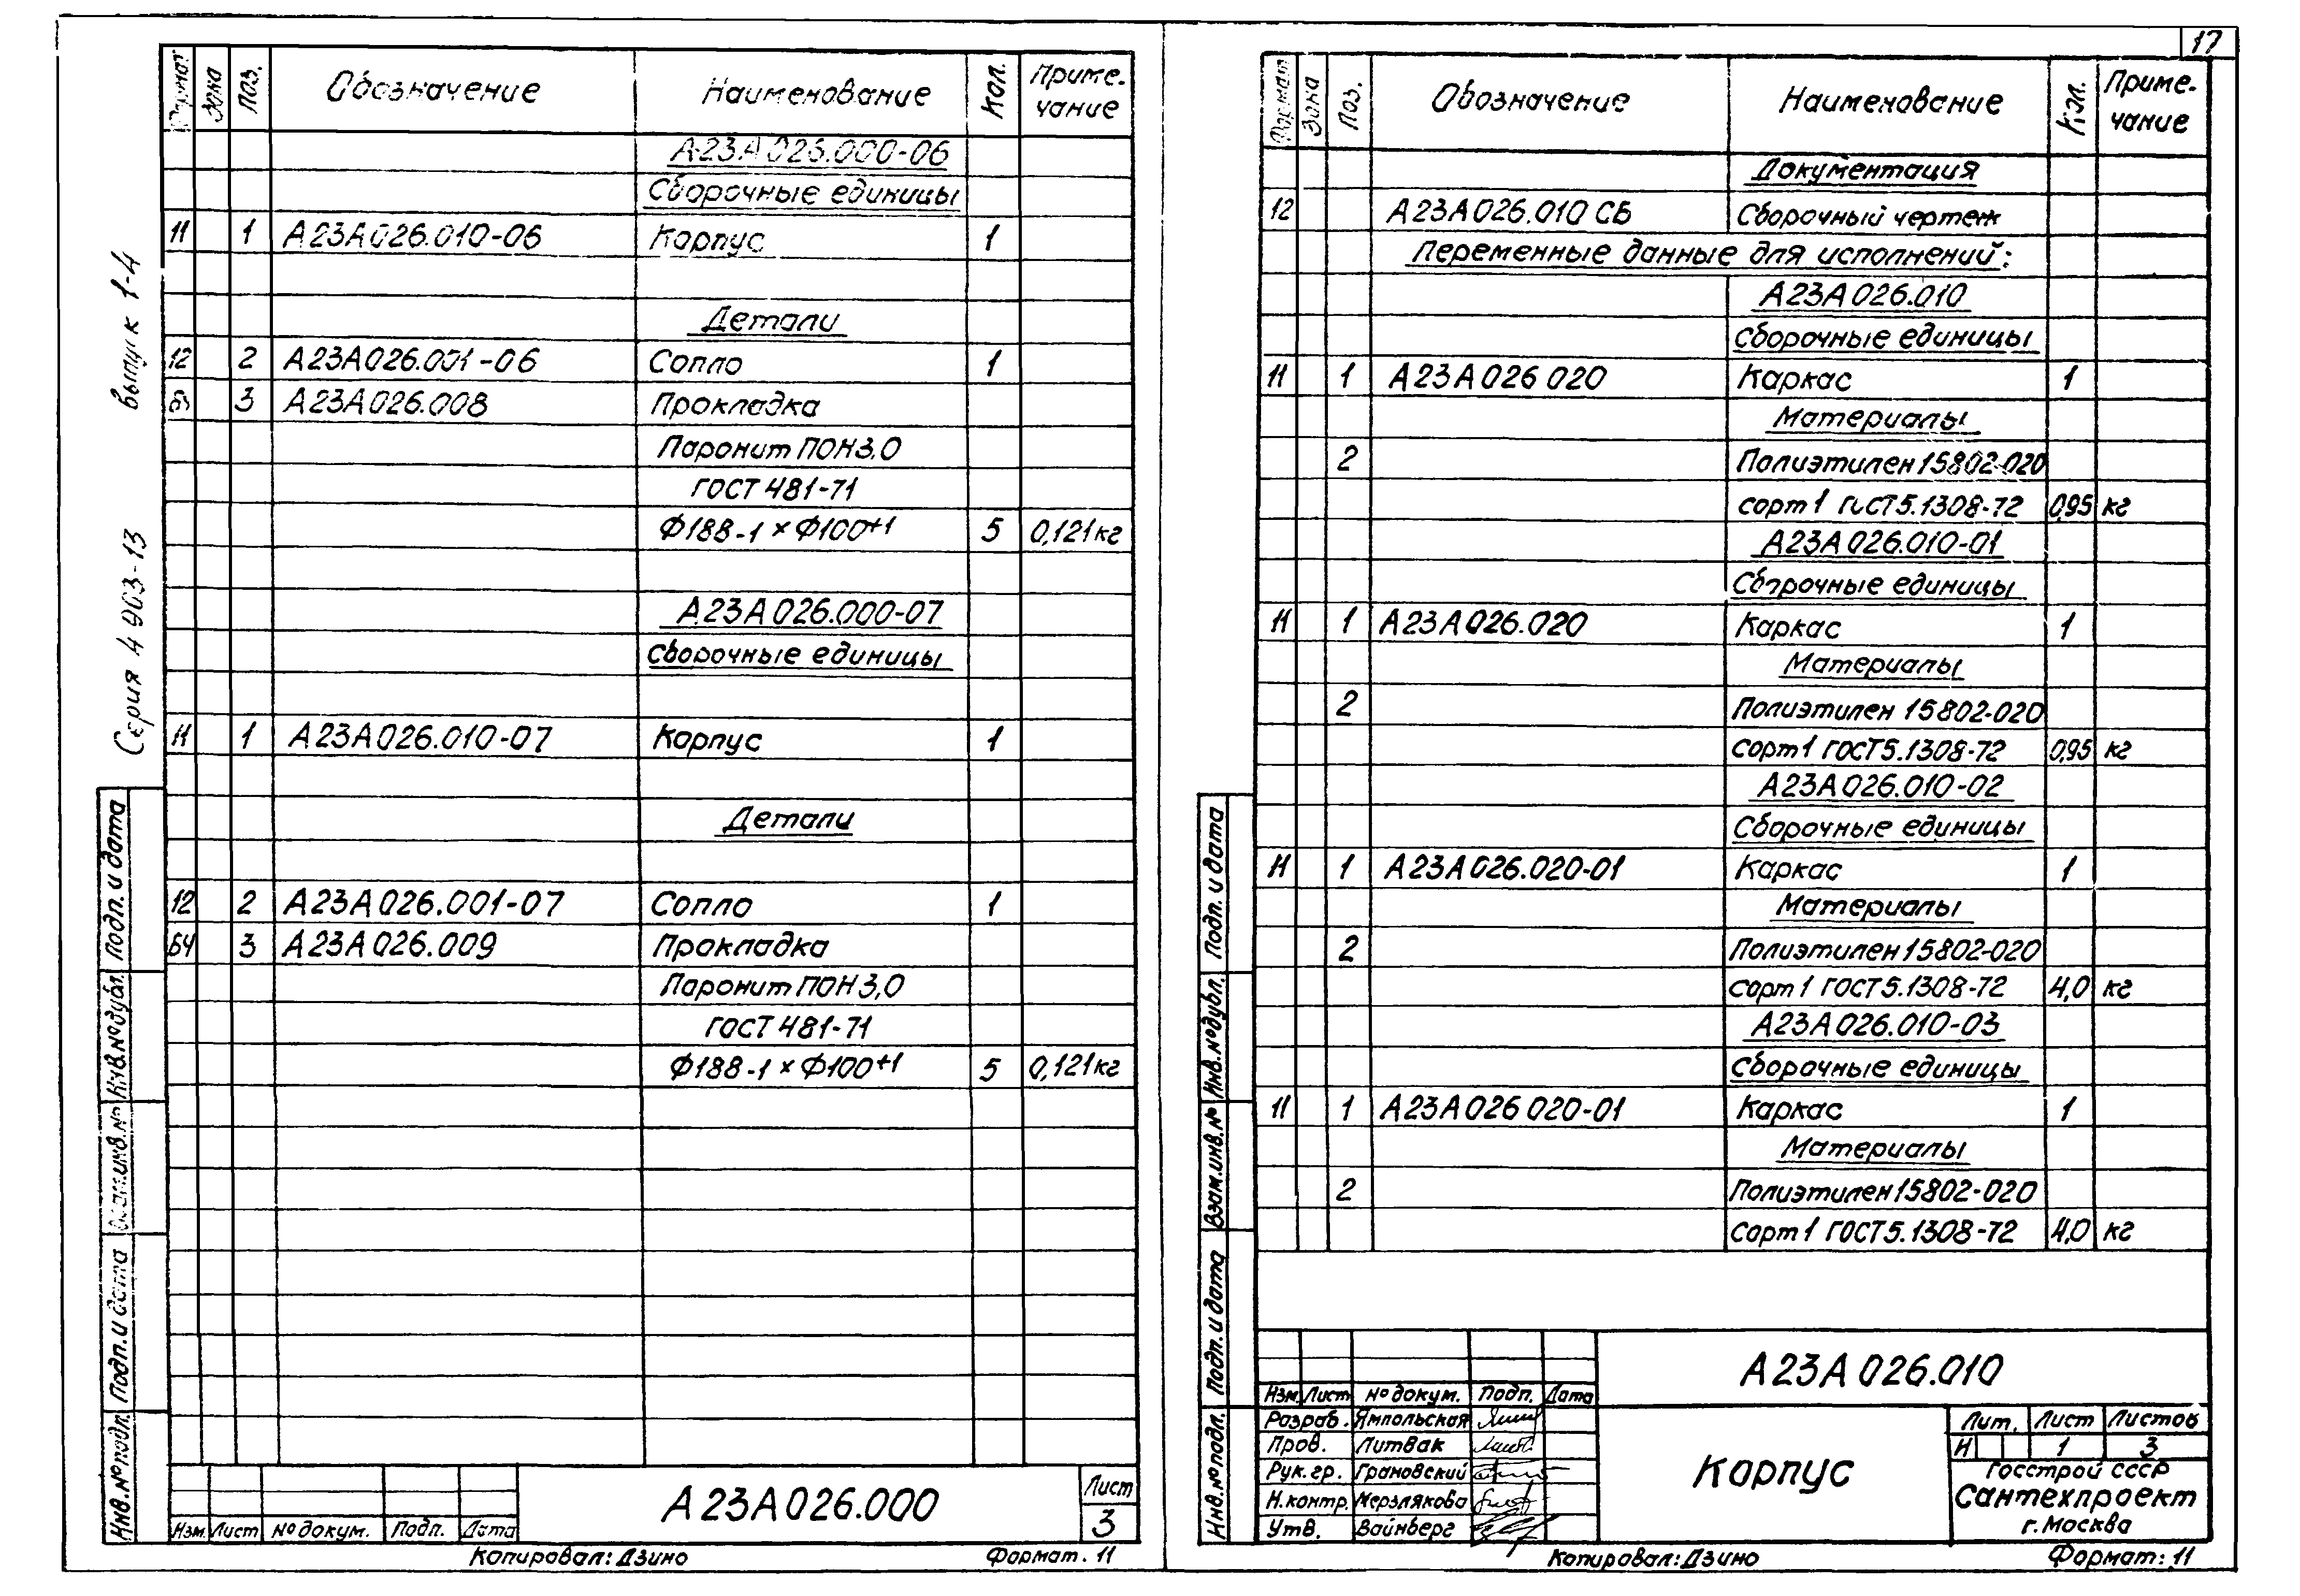 17
Серия 4 903-13 выпуск 1-4
Формат Зона Поз. Обозначение Наименование Кол. Приме-
чание
А23А026.000-06
Сборочные единицы
11 1 А23А026.010-06 Корпус 1
Детали
12 2 А23А026.001-06 Сопло 1
БЧ 3 А23А026.008 Прокладка
Паронит ПОН3,0
ГОСТ 481-71
Ф188-1 × Ф100+1 5 0,121кг
А23А026.000-07
Сборочные единицы
11 1 А23А026.010-07 Корпус 1
Детали
12 2 А23А026.001-07 Сопло 1
БЧ 3 А23А026.009 Прокладка
Паронит ПОН 3,0
ГОСТ 481-71
Ф188-1 × Ф100+1 5 0,121кг
Инв.№подл. Подп. и дата Взам.инв.№ Инв.№дубл. Подп. и дата
Изм. Лист № докум. Подп. Дата
А23А026.000
Лист
3
Копировал: Дзино Формат. 11
Формат Зона Поз. Обозначение Наименование Кол. Приме-
чание
Документация
12 А23А026.010 СБ Сборочный чертеж
Переменные данные для исполнений:
А23А026.010
Сборочные единицы
11 1 А23А026 020 Каркас 1
Материалы
2 Полиэтилен 15802-020
сорт 1 ГОСТ5.1308-72 0,95 кг
А23А026.010-01
Сборочные единицы
11 1 А23А026.020 Каркас 1
Материалы
2 Полиэтилен 15802-020
сорт 1 ГОСТ5.1308-72 0,95 кг
А23А026.010-02
Сборочные единицы
11 1 А23А026.020-01 Каркас 1
Материалы
2 Полиэтилен 15802-020
сорт 1 ГОСТ5.1308-72 4,0 кг
А23А026.010-03
Сборочные единицы
11 1 А23А026 020-01 Каркас 1
Материалы
2 Полиэтилен 15802-020
сорт 1 ГОСТ5.1308-72 4,0 кг
Инв.№подл. Подп. и дата Взам.инв.№ Инв.№дубл. Подп. и дата
А23А026.010
Изм. Лист № докум. Подп. Дата
Разраб. Ямпольская
Пров. Литвак
Рук. гр. Грановский
Н.контр. Мерзлякова
Утв. Вайнберг
Корпус
Лит. Лист Листов
И 1 3
Госстрой СССР
Сантехпроект
г. Москва
Копировал: Дзино Формат: 11